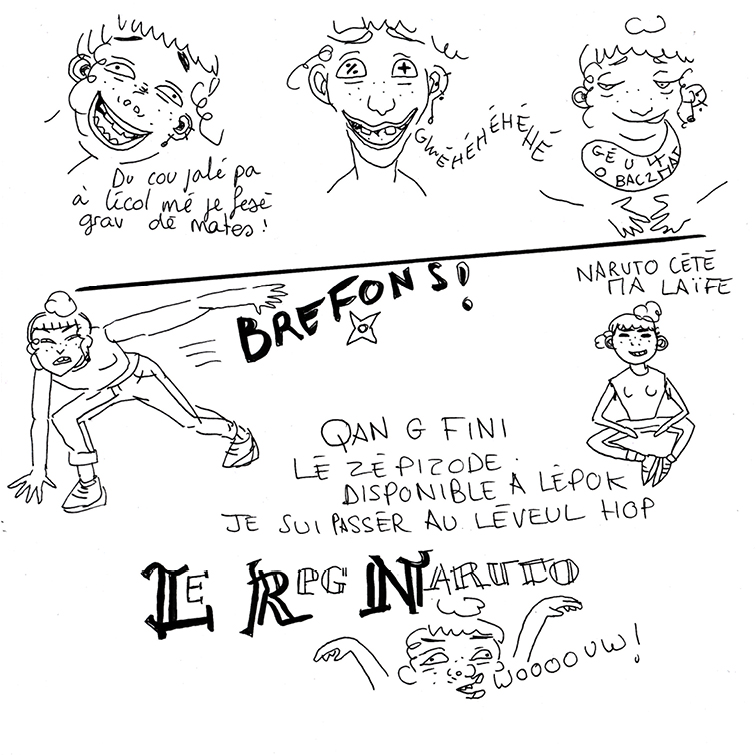 Du cou jalé pa
à licol mé je fesé
grav dé mates !
GWÉHÉHÉHÉHÉHÉ
GÉ U 4
O BAC2MAT
BREFONS!
NARUTO CÉTÉ
MA LAÏFE
QAN G FINI
LÉ ZÉPIZODE
DISPONIBLE À LÉPOK
JE SUI PASSÉR AU LÉVEUL HOP
LE RPG NARUTO
WOOOOUW!